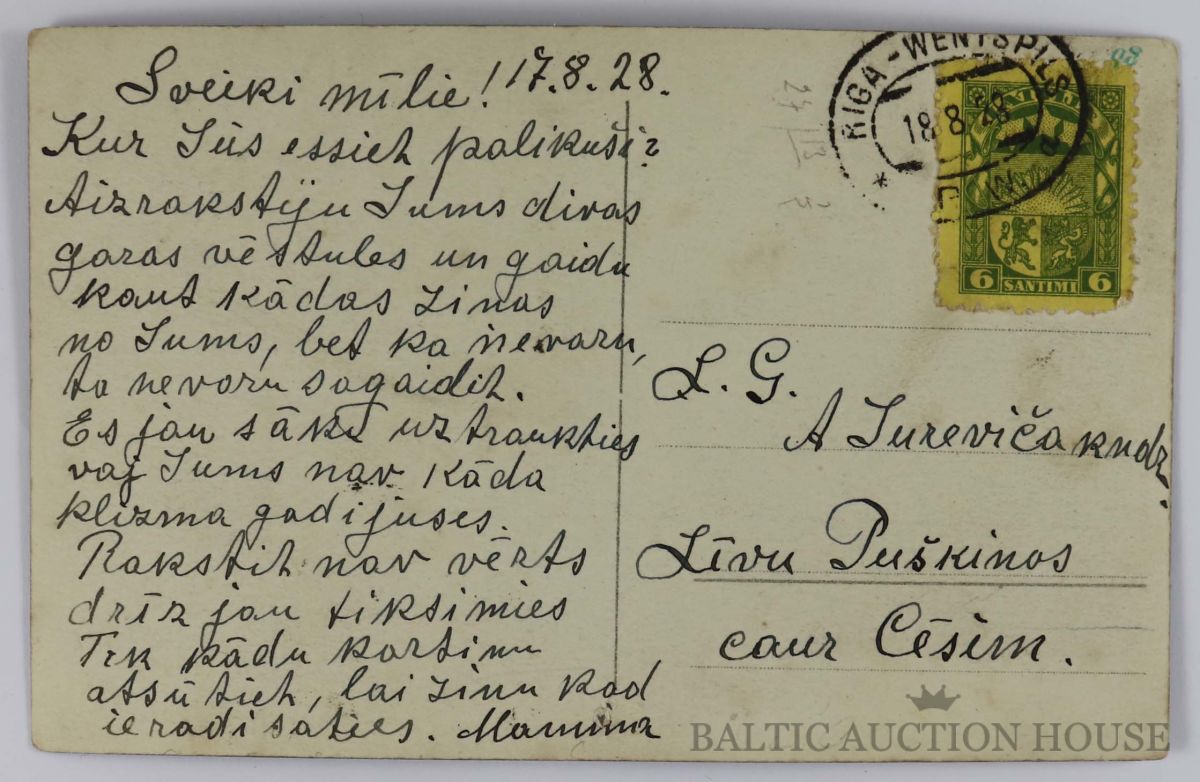 Sveiki mīlie! 17.8.28.
Kur Jūs essiet palikuši?
Aizrakstīju Jums divas
garas vēstules un gaidu
kaut kādas zinas
no Jums, bet ka nevaru,
ta nevaru sagaidit.
Es jau sāku uztraukties
vaj Jums nav kāda
klizma gadijuses.
Rakstit nav vērts
drīz jau tiksimies
kādu kartinu
atsūtiet, lai zinu kad
ieradīsaties. Mammina
RIGA-WENTSPILS
18 8 28
LATVIJA
6 SANTIMI 6
L. G.
A Jureviča kundz.
Līvu Puškinos
caur Cēsim.
BALTIC AUCTION HOUSE